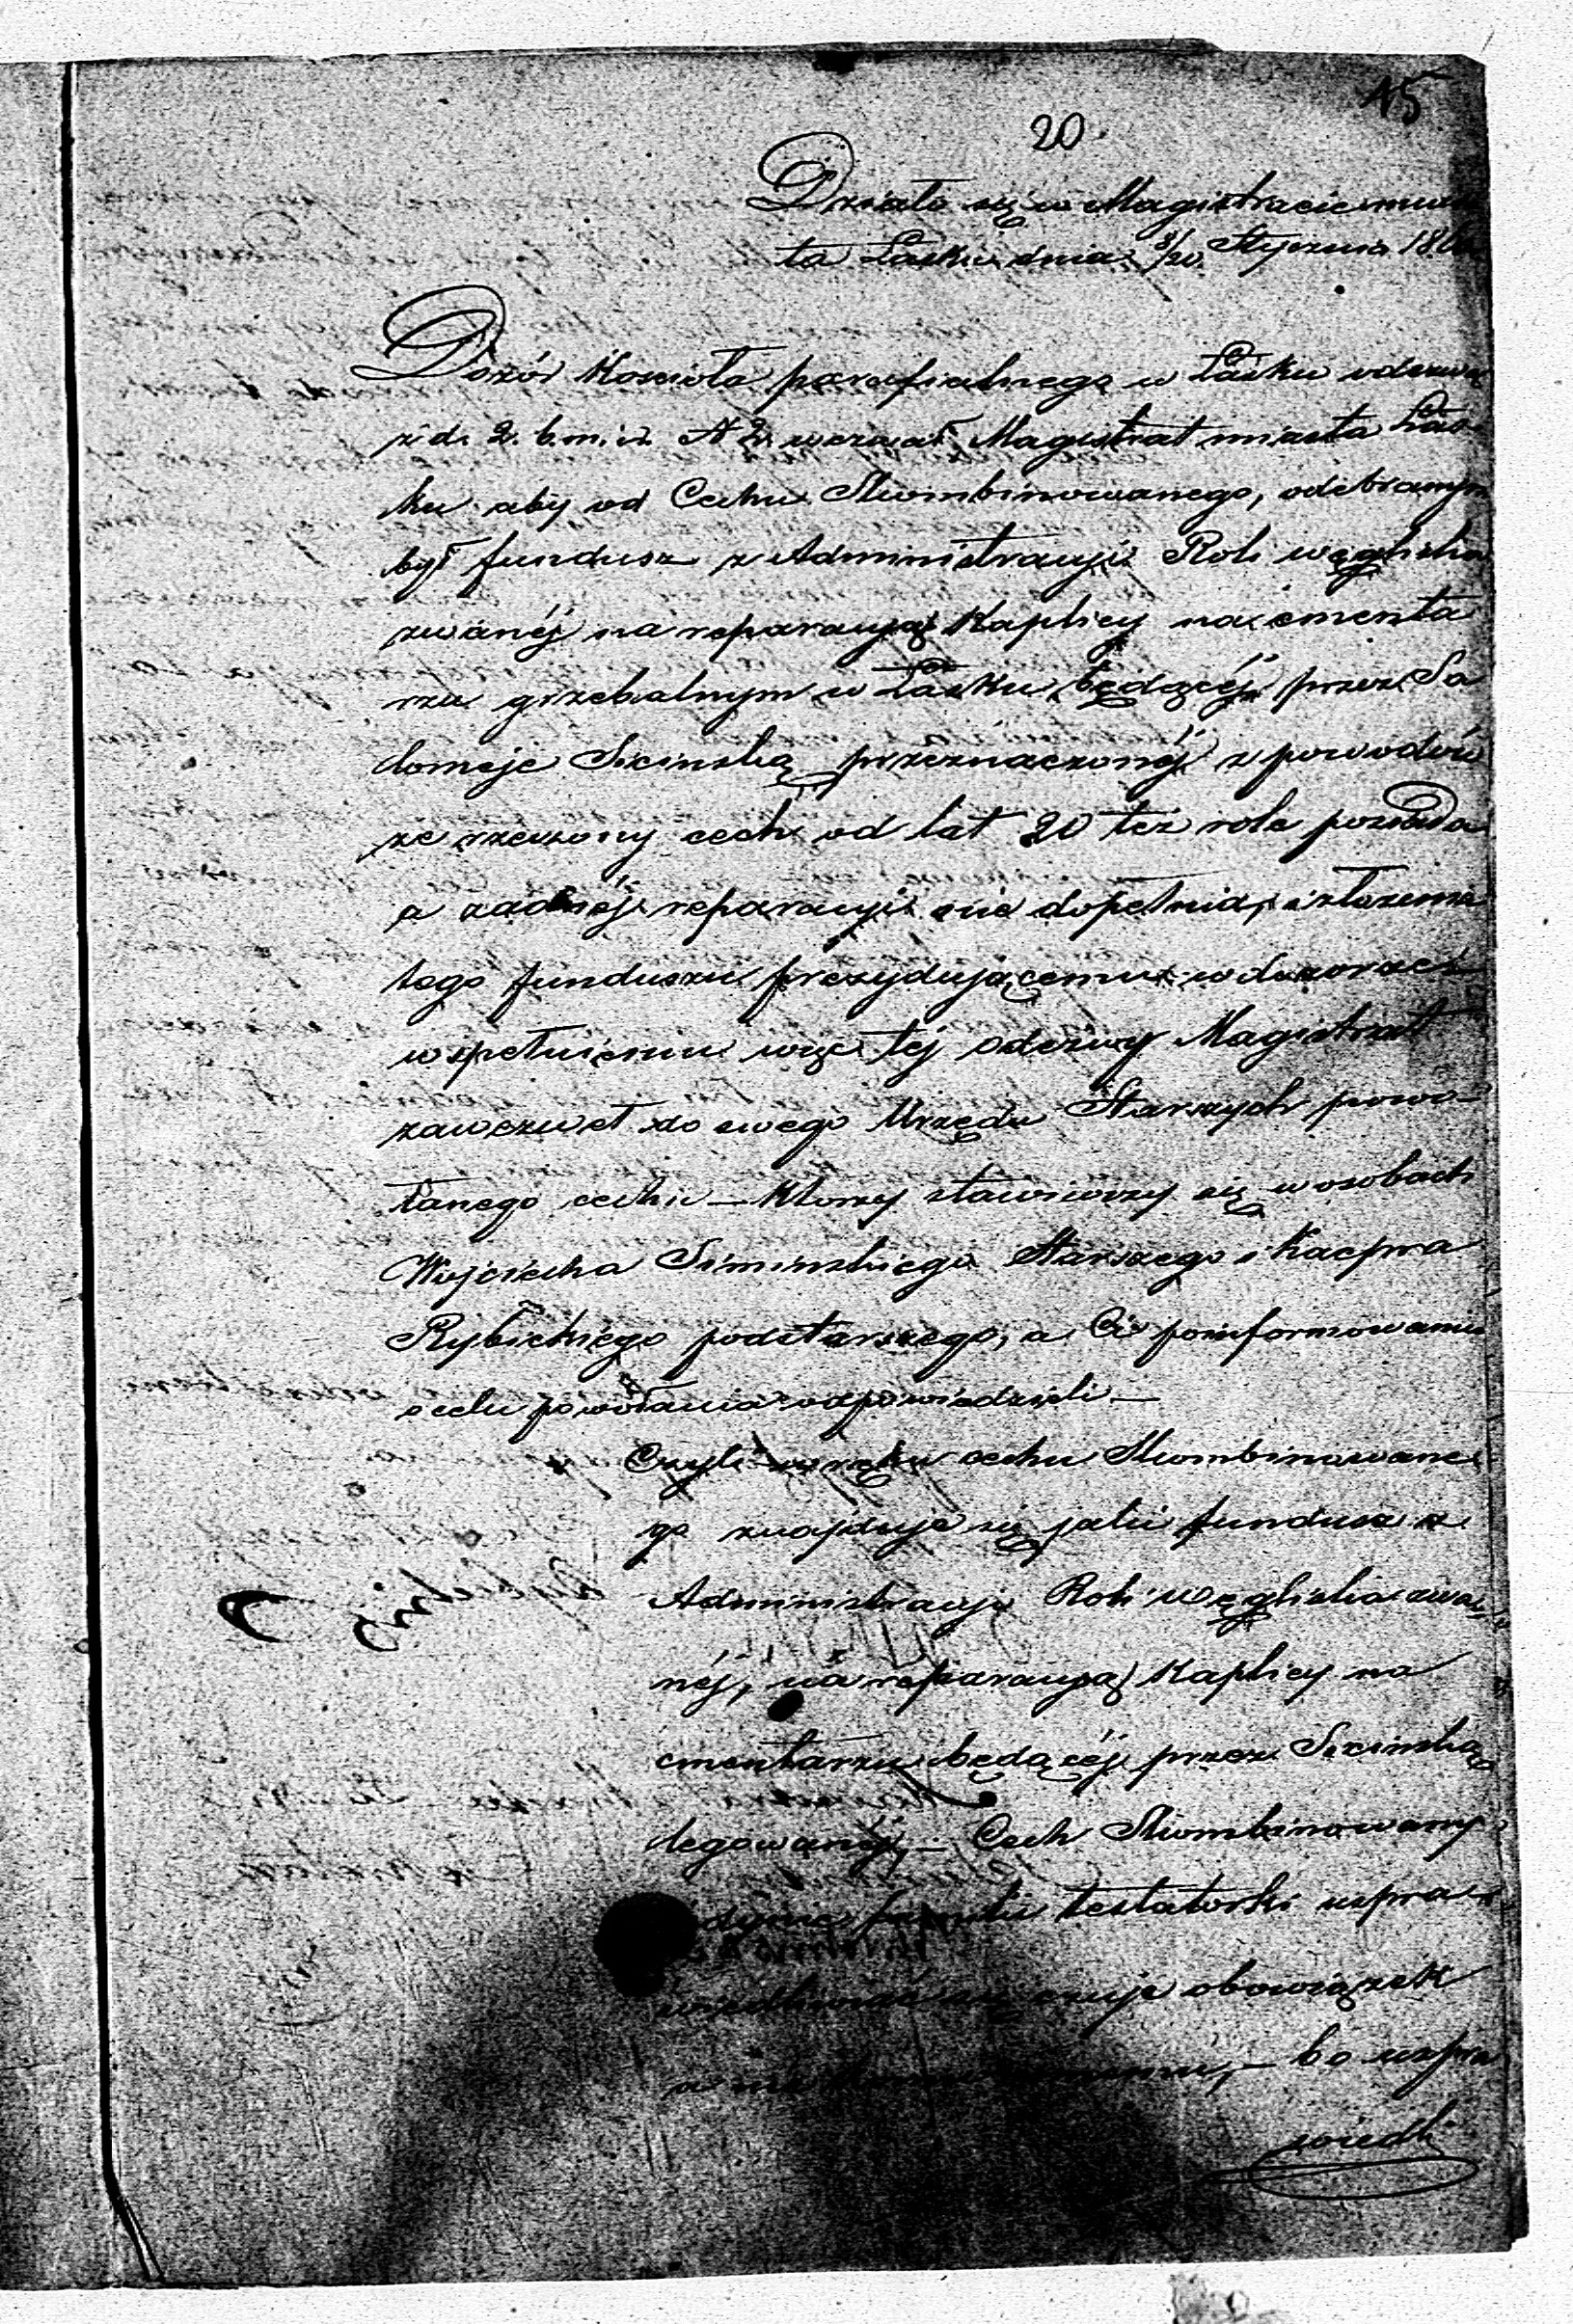 15
20
Działo się w Magistracie mias
ta Łasku dnia 8/20 Stycznia 18
Dozór Kościoła parafialnego w Łasku odezwą
z d. 2. b. m. i r. N 2. wezwał Magistrat miasta Łas
ku aby od Cechu Skombinowanego, odebranym
był fundusz z Administracyi Roli węgliska
zwanéj na reparacyą Kaplicy na cmenta
rzu grzebalnym w Łasku będącéj przez Sa
lomeje Sicinską przeznaczonéj z powodów
że rzeczony cech od lat 20 też role posiada
a żadnéj reparacyi nie dopełnia, i złożenia
tego funduszu prezydującemu w dozorze
w spełnieniu więc téj odezwy Magistrat
zawezwał do swego Urzędu Starszych powo-
łanego cechu — Którzy stawiwszy się w osobach
Wojciecha Siminskiego Starszego i Kacpra
Rybickiego podstarszego, a Ci poinformowani
o celu powołania odpowiedzieli —
Czyli w ręku cechu Skombinowane
go znajduje się jaki fundusz z
Administracyi Roli węgliska zwa
néj, na reparacyą Kaplicy na
cmentarzu będącéj przez Sicinską
legowanéj, — Cech Skombinowany
testatorki uspra
obowiązek
— bo uspra
wiedli